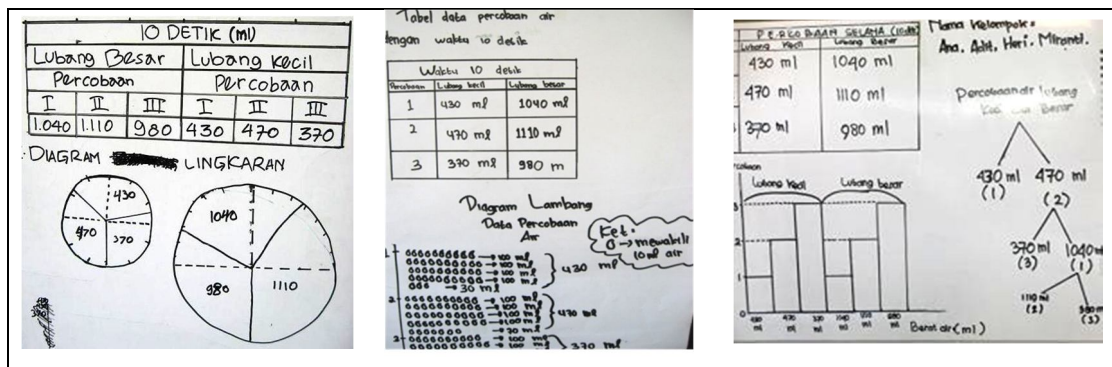 10 DETIK (ml)
Lubang Besar Lubang Kecil
Percobaan Percobaan
I II III I II III
1.040 1.110 980 430 470 370
DIAGRAM LINGKARAN
430
470 370
1040
980 1110
Tabel data percobaan air
dengan waktu 10 detik
Waktu 10 detik
Percobaan Lubang kecil Lubang besar
1 430 ml 1040 ml
2 470 ml 1110 ml
3 370 ml 980 m
Diagram Lambang
Data Percobaan
Air
Ket:
0 → mewakili
10 ml air
1
→ 100 ml
→ 100 ml
→ 100 ml
→ 100 ml
→ 30 ml
430 ml
2
→ 100 ml
→ 100 ml
→ 100 ml
→ 100 ml
→ 70 ml
470 ml
3
→ 100 ml
→ 100 ml
370 ml
PERCOBAAN SELAMA
Lubang Kecil Lubang Besar
430 ml 1040 ml
470 ml 1110 ml
370 ml 980 ml
Nama Kelompok:
Ana. Adit. Heri. Miranti.
Percobaan air lubang
Besar
430 ml 470 ml
(1) (2)
370 ml 1040 ml
(3) (1)
1110 ml
(2) (3)
Lubang kecil Lubang besar
3
2
1
0
430 ml 470 ml
Berat air (ml)